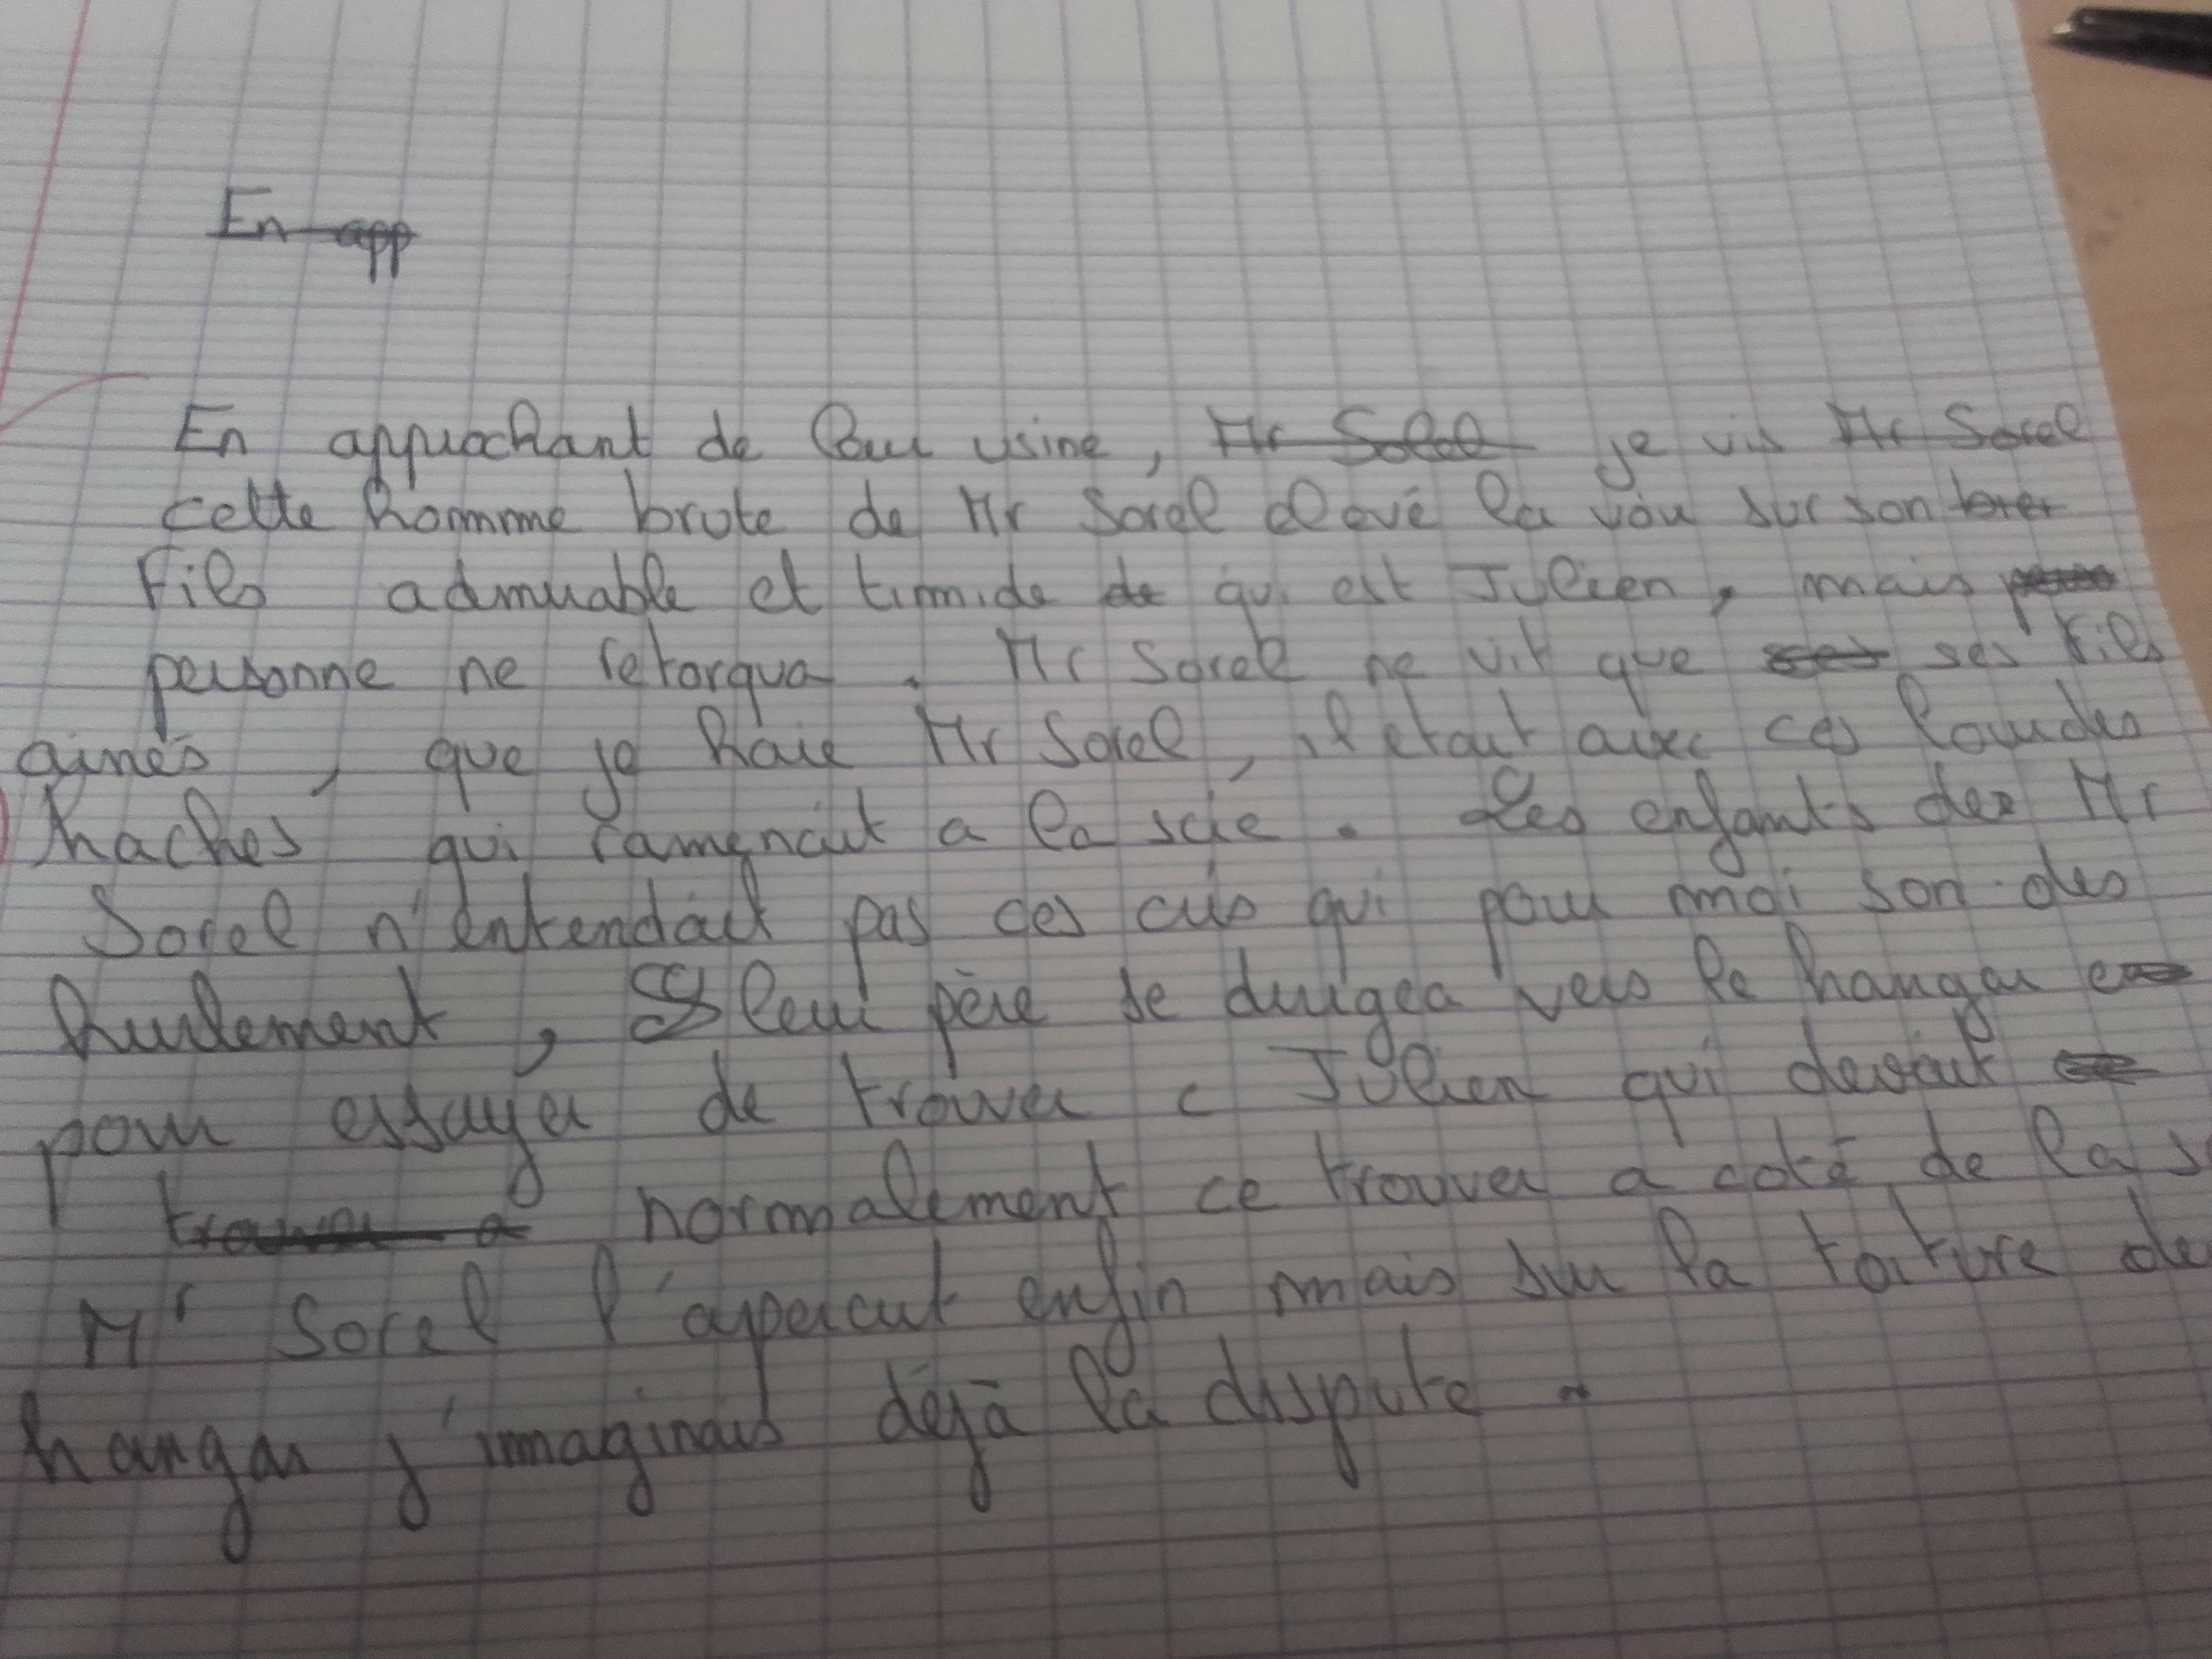 En app
En approchant de leur usine, Mr Solel je vis Mr Sorel
cette homme brute de Mr Sorel elevé la voix sur son
fils admirable et timide de qui est Julien, mais
personne ne retorqua. Mr Sorel ne vit que ses ses fils
ainés, que je haie Mr Sorel, il etait avec ces lourdes
haches qui ramenait a la scie. Les enfants de Mr
Sorel n'entendait pas ces cris qui pour moi son des
hurlement, leur père se dirigea vers le hangar
pour essayer de trouver c Julien qui devait
trouver a normalement ce trouver a coté de la s
Mr Sorel l'apercut enfin mais sur la toiture de
hangar j'imaginais déjà la dispute.